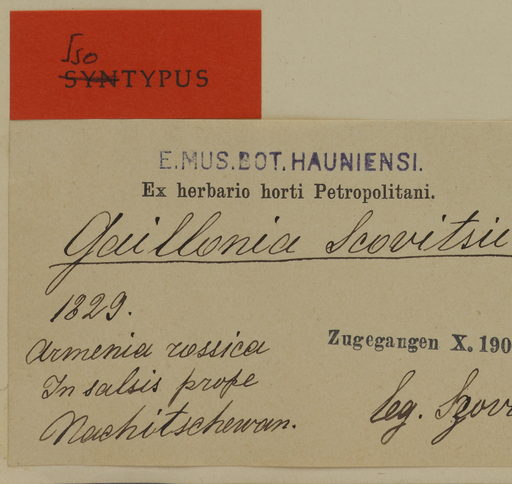 Iso
SYNTYPUS
E.MUS.BOT.HAUNIENSI.
Ex herbario horti Petropolitani.
Gaillonia Scovitsii
1829.
Armenia rossica
Zugegangen X. 190
In salsis prope
Nachitschewan.
leg. Szov